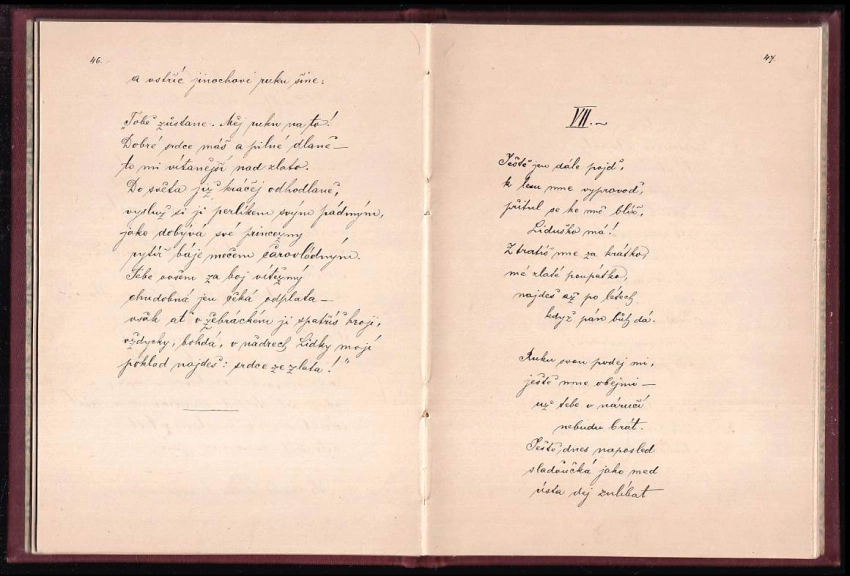 46.
a vstříc jinochovi ruku šine:
„Tobě zůstane. Měj ruku na to!
Dobré srdce máš a pilné dlaně —
to mi vítanější nad zlato.
Do světa jen kráčej odhodlaně,
vysluž si ji perlíkem svým pádným,
jako dobývá své princezny
rytíř báje mečem čarovládným.
Tebe ovšem za boj vítězný
chudobná jen čeká odplata —
však ať v žebráckém ji spatříš kroji,
vždycky, bohdá, v ňadrech Lidky mojí
poklad najdeš: srdce ze zlata!“
47.
VII.
Ještě jen dále pojď,
k lesu mne vyprovoď,
přitul se ke mě blíž,
Liduško má!
Ztratíš mne za krátko,
mé zlaté poupátko,
najdeš až po létech
když pán bůh dá.
Ruku svou podej mi,
ještě mne obejmi —
už tebe v náručí
nebudu brát.
Ještě dnes naposled
sladoučká jako med
ústa dej zulíbat